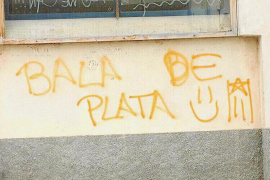 BALA DE
PLATA